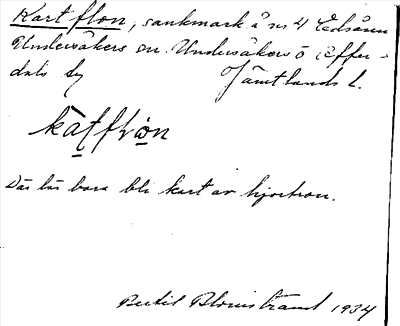 Kart flon, sankmark å nr 4 Edsåsen
Undersåkers sn. Undersåkers o Offer-
dals tg Jämtlands l.
kàt̯flɷ̀n
Där lär bara bli kart av hjortron.
Bertil Blomstrand 1934